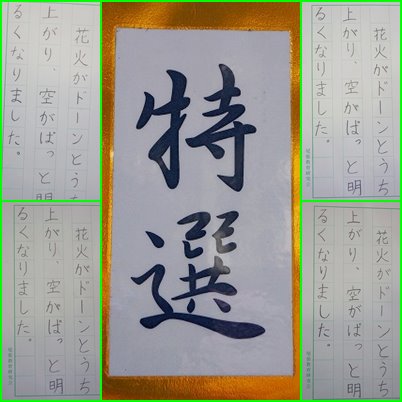 特選
花火がドーンとうち
上がり、空がぱっと明
るくなりました。
花火がドーンとうち
上がり、空がぱっと明
るくなりました。
花火がドーンとうち
上がり、空がぱっと明
るくなりました。
花火がドーンとうち
上がり、空がぱっと明
るくなりました。